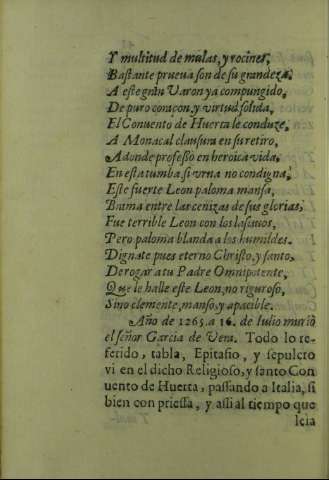 Y multitud de mulas, y rocines,
Bastante prueua son de su grandeza.
A este gran Varon ya compungido,
De puro coraçon, y virtud solida,
El Conuento de Huerta le conduze,
A Monacal clausura en su retiro,
Adonde professo en heroica vida,
En esta tumba si vrna no condigna,
Este fuerte Leon paloma mansa,
Brama entre las cenizas de sus glorias,
Fue terrible Leon con los
Pero paloma blanda a los humildes.
Dignate pues eterno Christo, y santo,
De rogar a tu Padre Omnipotente,
Que le halle este Leon, no riguroso,
Sino clemente, manso, y apacible.
Año de 1265. a 16. de Iulio murio
el señor Garcia de Vera. Todo lo re-
ferido, tabla, Epitafio, y sepulcro
vi en el dicho Religioso, y santo Con
uento de Huerta, passando a Italia, si
bien con priessa, y assi al tiempo que
leia